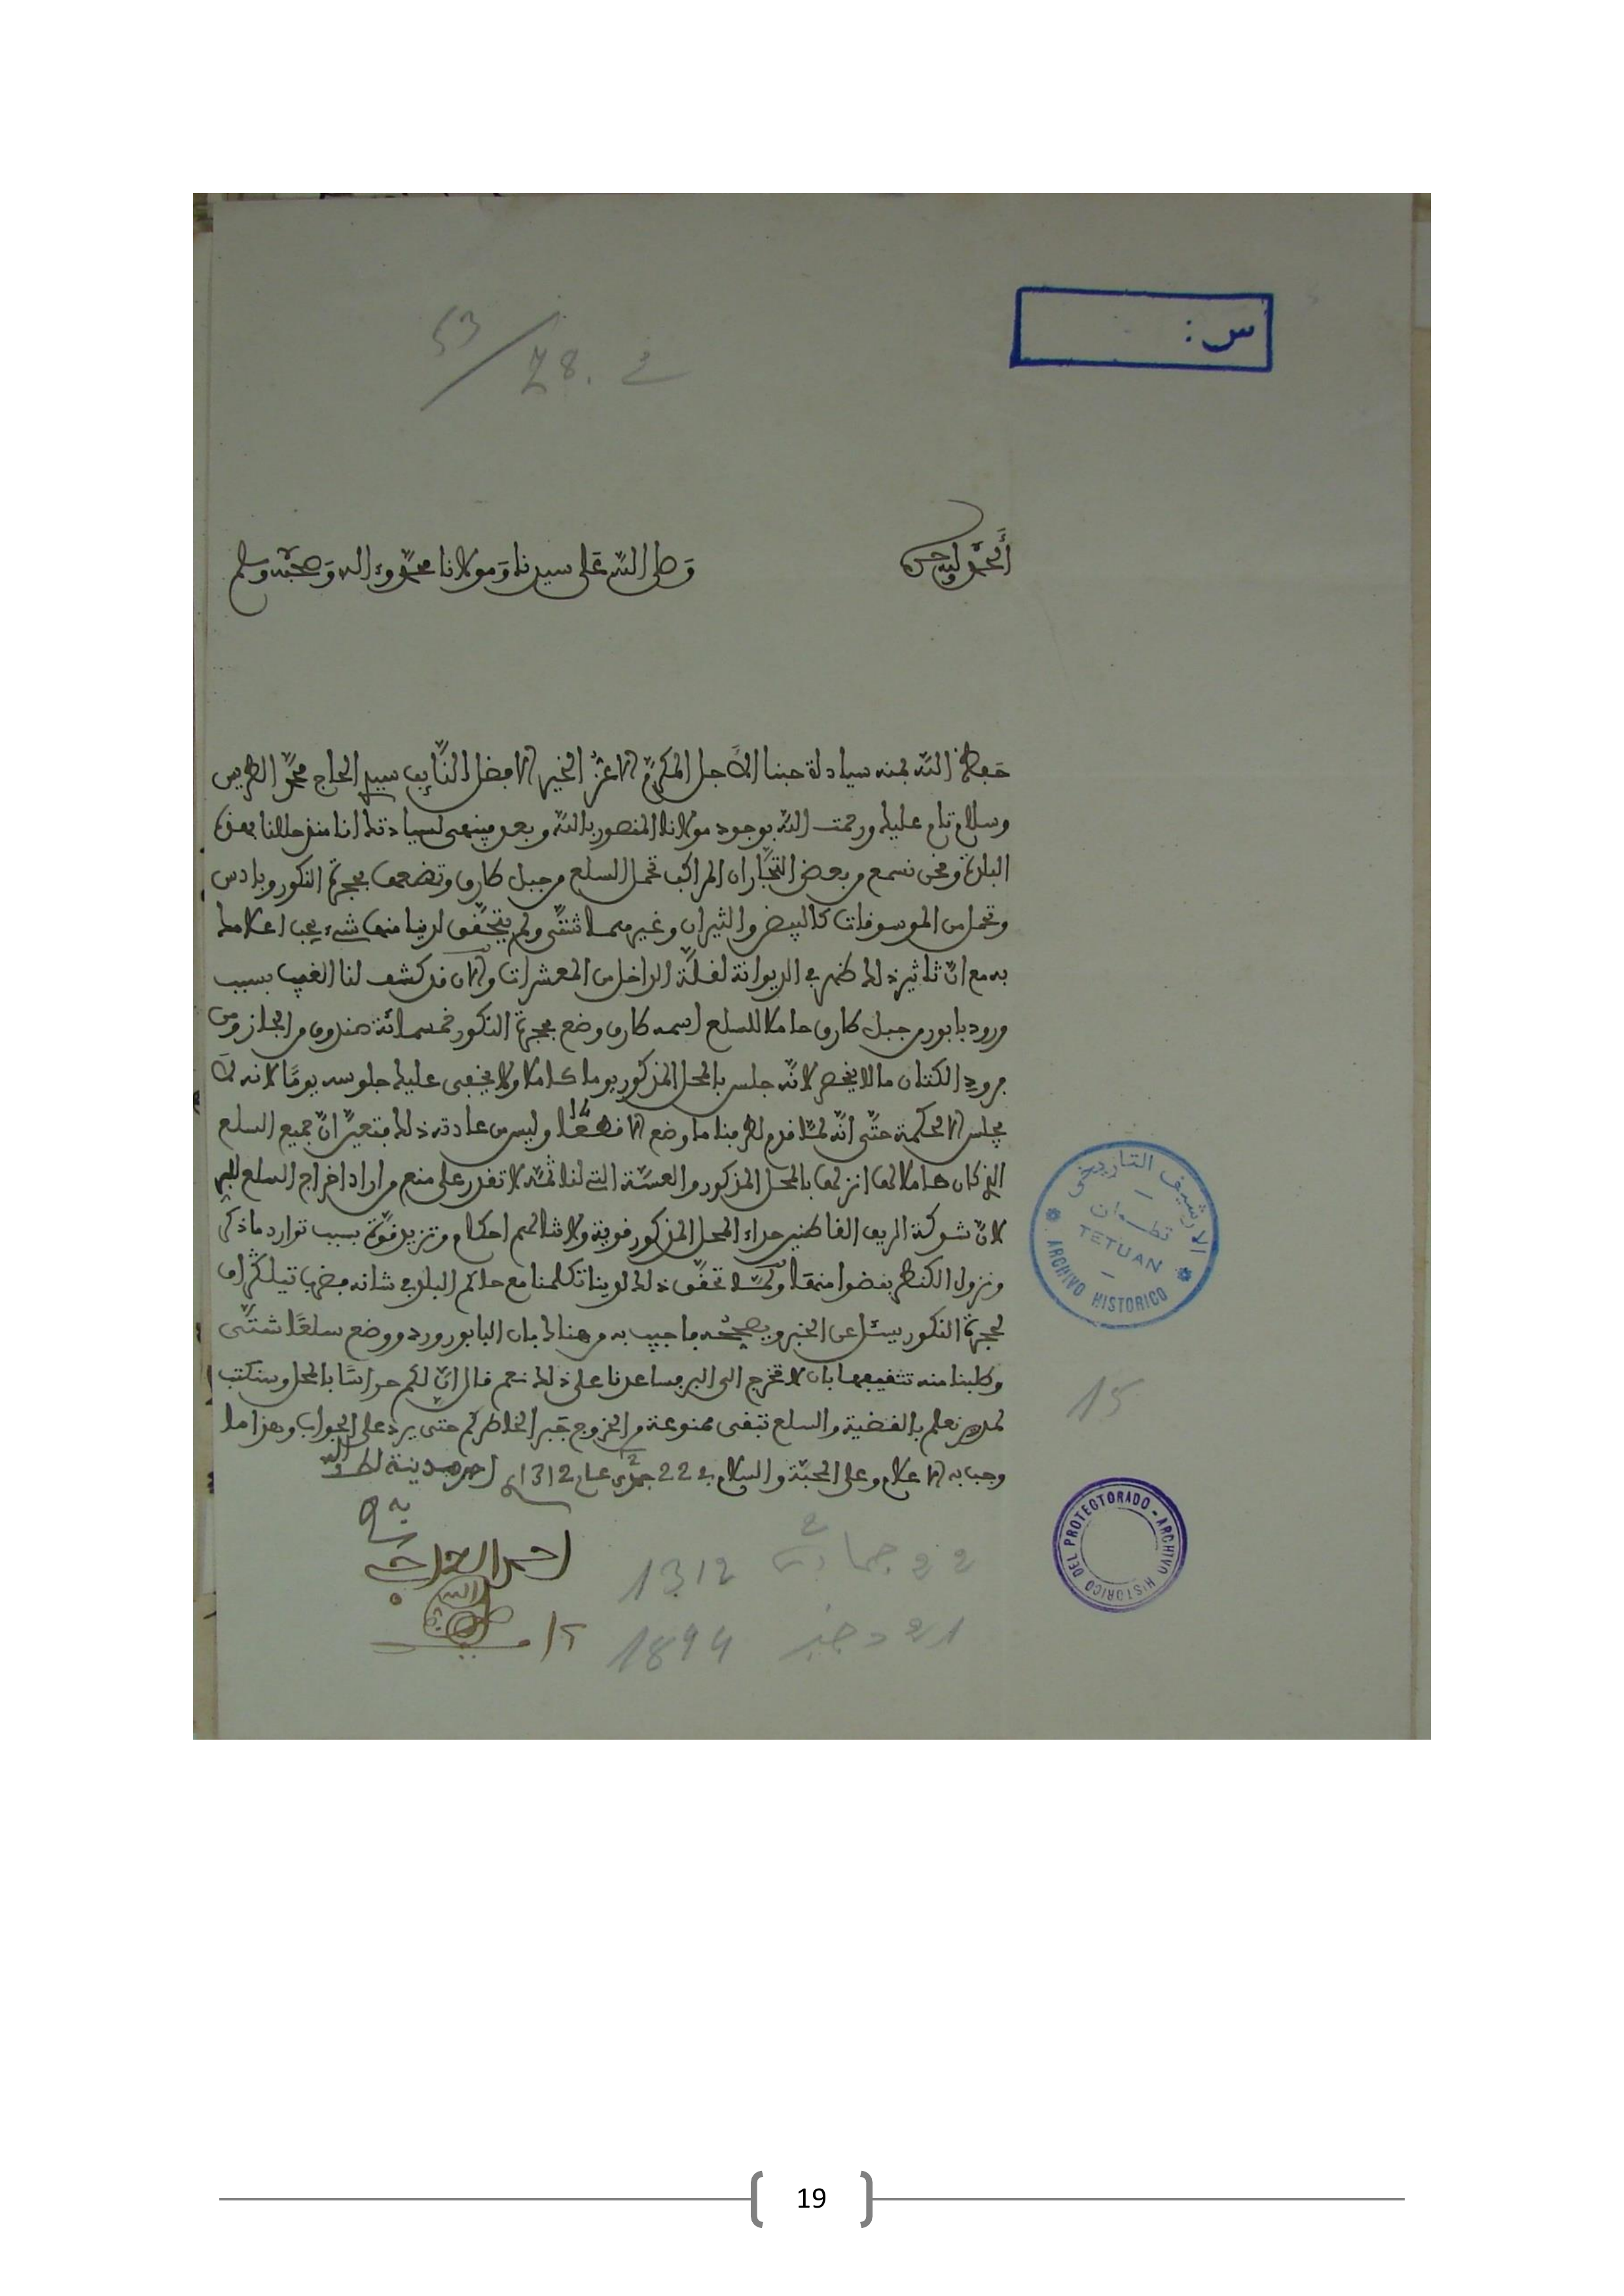 س :
53 / 78. 2
الحمد لله وحده
وصلى الله على سيدنا ومولانا محمد وءاله وصحبه وسلم
حفظ الله بمنه سيادة محبنا الأجل المكرم الأعز الخير الأفضل النايب سيدي الحاج محمد الطريس
وسلام تام عليك ورحمت الله بوجود مولانا المنصور بالله وبعد فينهى لسيادتك اننا منذ حللنا بهذه
البلدة ونحن نسمع من بعض التجار ان المراكب تحمل السلع من جبل طارق وتضعها بحجرة النكور وبادس
وتحمل من الموسوقات كالبيض والثيران وغيرهما شتى ولم يتحقق لدينا منها شيء يجب اعلامك
به مع ان تاثير ذلك ظهر في الديوانة لقلة الداخل من المعشرات والان قد كشف لنا الغيب بسبب
ورود بابور من جبل طارق حاملا للسلع اسمه طارق وضع بحجرة النكور خمسمائة صندوق من المجاز ومن
فرود الكتان ما لا يحصر لانه جلس بالمحل المذكور يوما كاملا ولا يخفى عليك جلوسه يوما لانه لا
يجلس الا لحكمة حتى انه لما قدم لطرفنا ما وضع الا وليس من عادته ذلك فتعين ان جميع السلع
الذي كان حاملا لها انزلها بالمحل المذكور والعسة التي لنا ثمة لا تقدر على منع من اراد اخراج السلع للبر
لان شوكة الريف القاطنين حذاء المحل المذكور قوية ولا تنالهم احكام وتزيد قوة بسبب توارد ما ذكر
ونزول الكنطربنضوا منها ولما تحقق ذلك لدينا تكلمنا مع حاكم البلد في شانه فضرب تيلكراف
لحجرة النكور يسئل عن الخبر وصحته فاجيب به من هناك بان البابور ورد ووضع سلعا شتى
وطلبنا منه تثقيفها بان لا تخرج الى البر فساعدنا على ذلك نعم قال ان لكم حراسا بالمحل وسنكتب
لمدريد نعلم بالقضية والسلع تبقى ممنوعة من الخروج جبرا لخاطركم حتى يرد علي الجواب وهذا ما
وجب به الاعلام وعلى المحبة والسلام في 22 جمدى 2 عام 1312
22 جمادى 2 1312
21 دجنبر 1894
15
الارشيف التاريخي
تطوان
TETUAN
ARCHIVO HISTORICO
ARCHIVO HISTORICO DEL PROTECTORADO
19